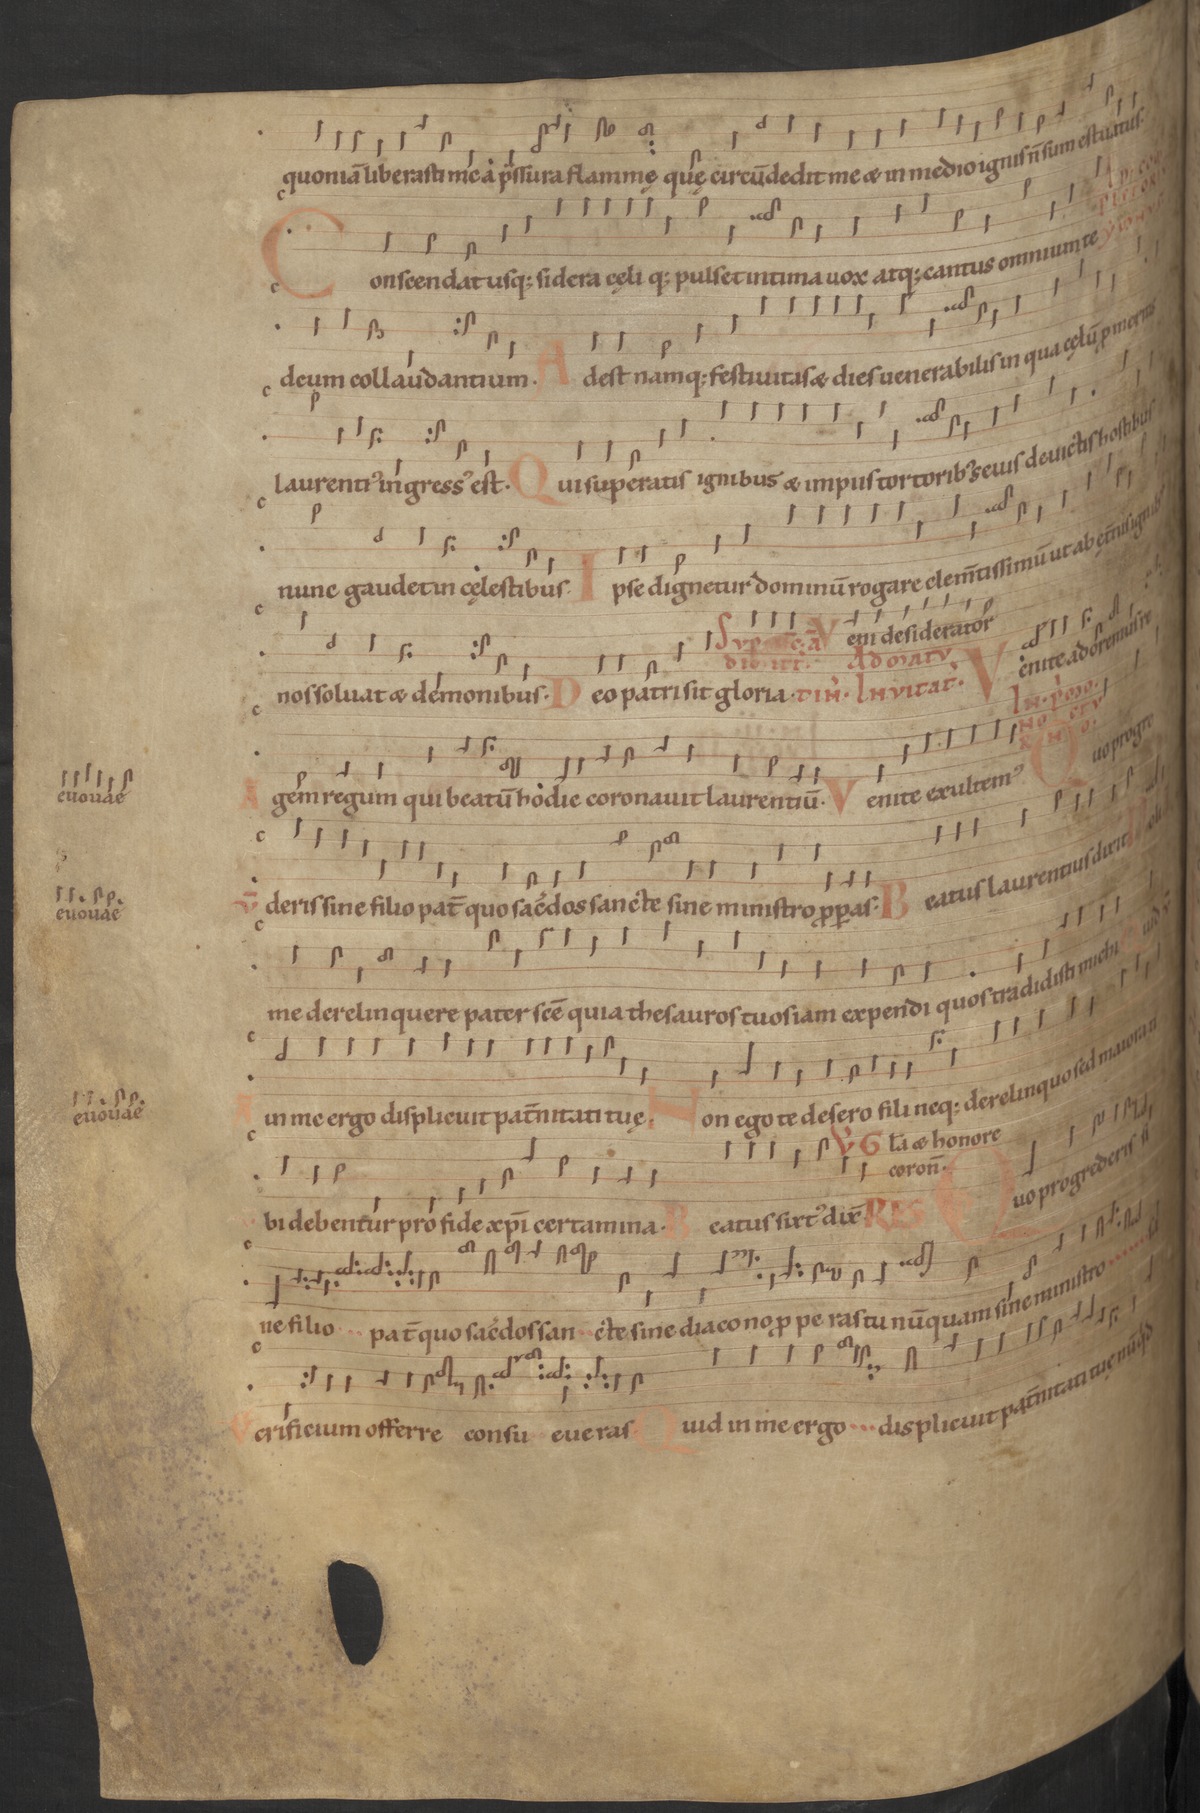 quoniā liberasti me a p̄ssura flammę quę circūdedit me æ in medio ignis ñ sum estuatus.
Conscendat usq; sidera cęli q; pulset intima uox atq; cantus omnium te
deum collaudantium. Adest namq; festiuitas æ dies uenerabilis in qua cęlū p meritis
laurenti' ingress' est. Qui superatis ignibus æ impiis tortorib; seuis deuictis hostibus
nunc gaudet in cęlestibus. Ipse dignetur dominū rogare clem̄tissimū ut ab ęt̄nis ignib'
V em desiderator
nos soluat æ demonibus. Deo patri sit gloria. Inuitat. Venite adoremus re
gem regum qui beatū hodie coronauit laurentiū. Venite exultem'
Quo progre
euouae
deris sine filio pat̄ quo sacerdos sancte sine ministro pperas. Beatus laurentius dixit Noli
euouae
me derelinquere pater sc̄e quia thesauros tuos iam expendi quos tradidisti michi
in me ergo displicuit pat̄nitati tuę. Non ego te desero fili neq; derelinquo sed maiora ti
euouae
V Gl̄a æ honore
coron̄.
bi debentur pro fide xp̄i certamina. Beatus sixt' dix̄ RES Quo progrederis si
ne filio pat̄ quo sacerdos sancte sine diacono pperas tu nūquam sine ministro
crificium offerre consueueras Quid in me ergo displicuit pat̄nitati tuę nūqd